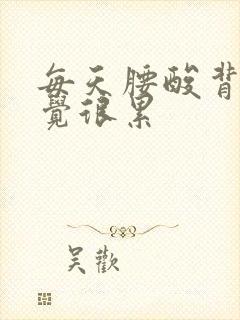 每天腰酸背
覺很累
吳歡